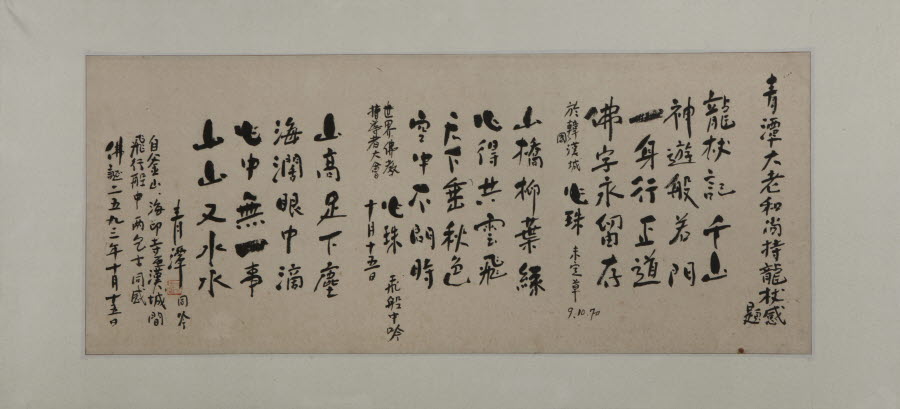 青潭大老和尚持龍杖感
題
龍杖記千山
神遊般若門
一身行正道
佛字永留存
於韓國漢城 心珠 未定草 9.10.70
山橋柳葉綠
心得共雲飛
天下垂秋色
空中不問時
世界佛教
指導者大會 心珠 飛般中吟
十月十五日
山高足下塵
海濶眼中滴
心中無一事
山山又水水
青潭 同吟
自釜山、海印寺至漢城間
飛行般中 两乞士同感
佛誕二五九三年十月十五日